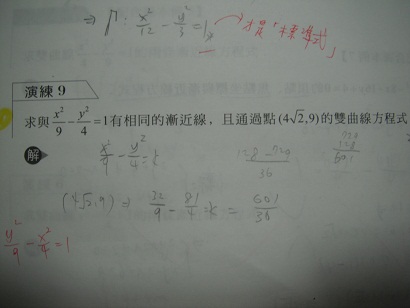 ⇒ Γ: x²/12 - y²/3 = 1 → 才是「標準式」
演練 9
求與 x²/9 - y²/4 = 1 有相同的漸近線，且通過點 (4√2,9) 的雙曲線方程式
解 x²/9 - y²/4 = k
128 - 729 / 36
729
128
601
(4√2,9) ⇒ 32/9 - 81/4 = k = 601/36
y²/9 - x²/4 = 1